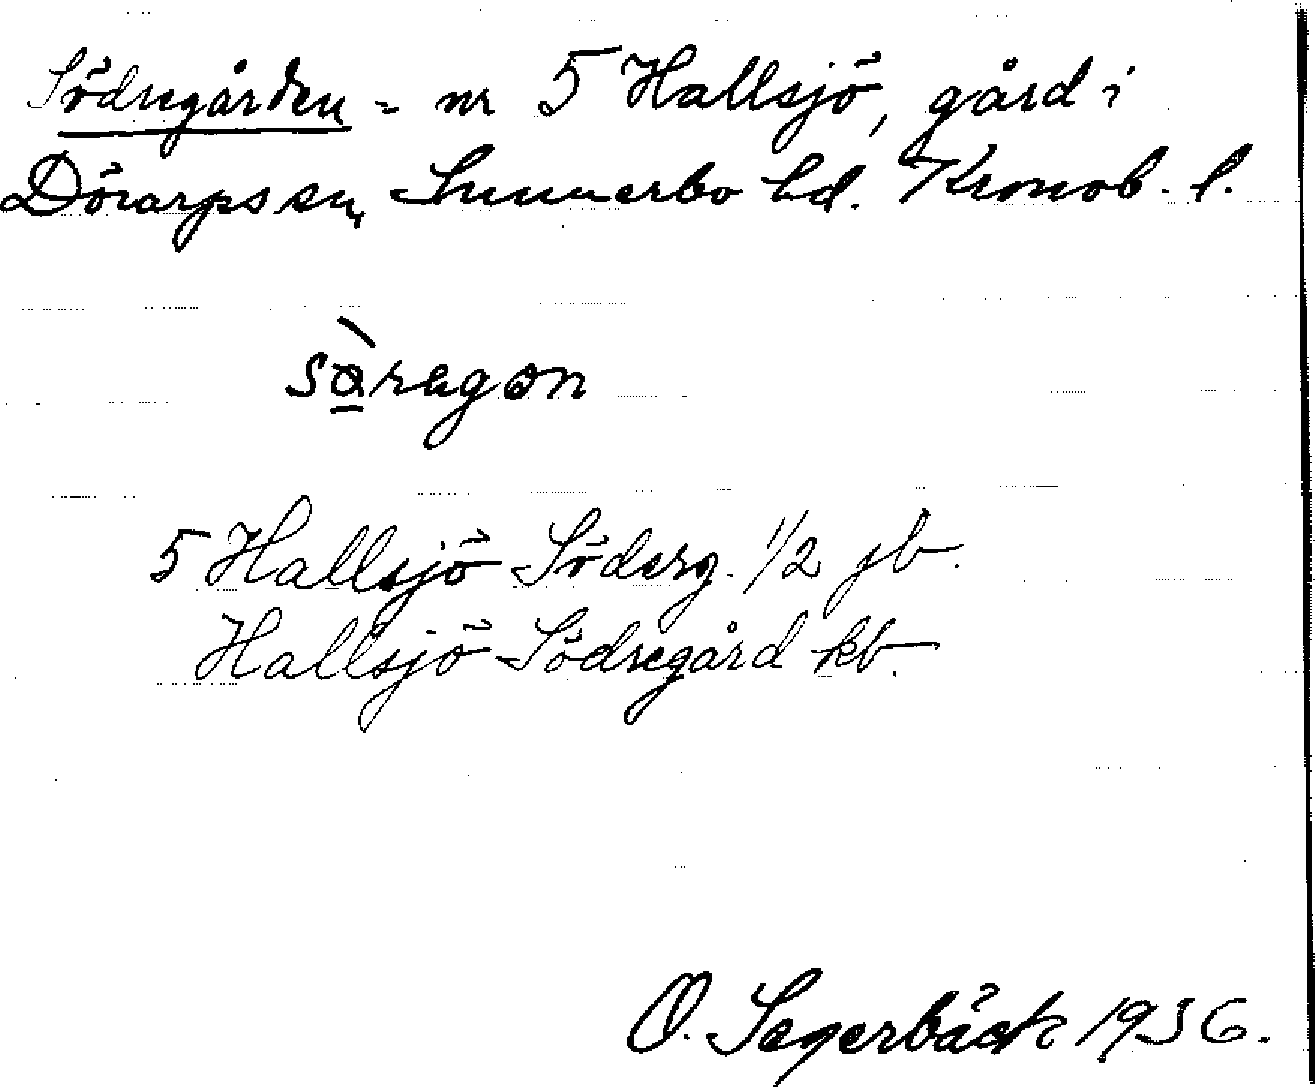 Södregården = nr 5 Hallsjö, gård i
Dörarps sn, Sunnerbo hd. Kronob. l.
sὰragon
5 Hallsjö Söderg. 1/2 jb.
Hallsjö Södregård kb.
O. Segerbäck 1936.